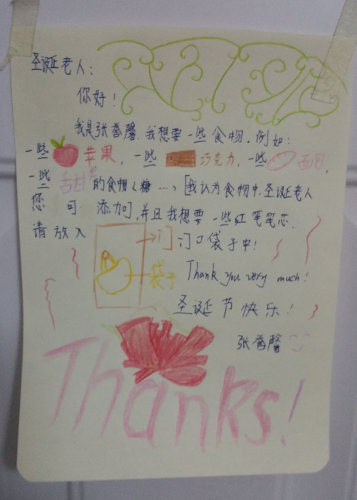 圣诞老人：
你好！
我是张馨馨，我想要一些食物，例如：
一些苹果，一些巧克力，一些
一些甜甜的食物（糖…，）[我认为食物中，圣诞老人
您可添加]，并且我想要一些红笔笔芯。
请放入门口袋子中！
门
袋子
Thank you very much！
圣诞节快乐！
张馨馨
Thanks!